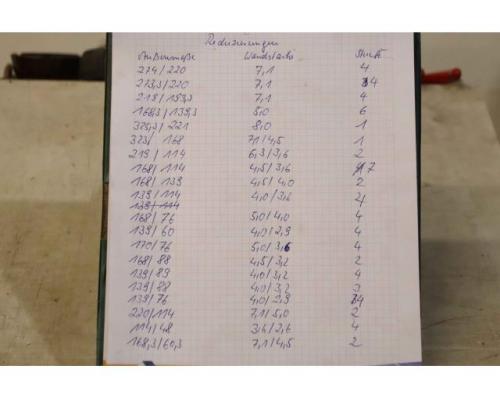 Reduzierungen
Außenmaße Wandstärke Stück
274/220 7,1 4
273,3/220 7,1 4
219/159,3 7,1 4
168,3/139,3 5,0 6
323,3/221 8,0 1
323/168 7,1/4,5 1
219/114 6,3/3,6 2
168/114 4,5/3,6 7
168/139 4,5/4,0 2
139/114 4,0/3,6 4
139/114
168/76 5,0/4,0 4
139/60 4,0/2,9 4
170/76 5,0/3,6 4
168/88 4,5/3,2 2
139/89 4,0/3,2 4
139/88 4,0/3,2 2
139/76 4,0/2,9 4
220/114 7,1/5,0 2
114/48 3,6/2,6 4
168,3/60,3 7,1/4,5 2